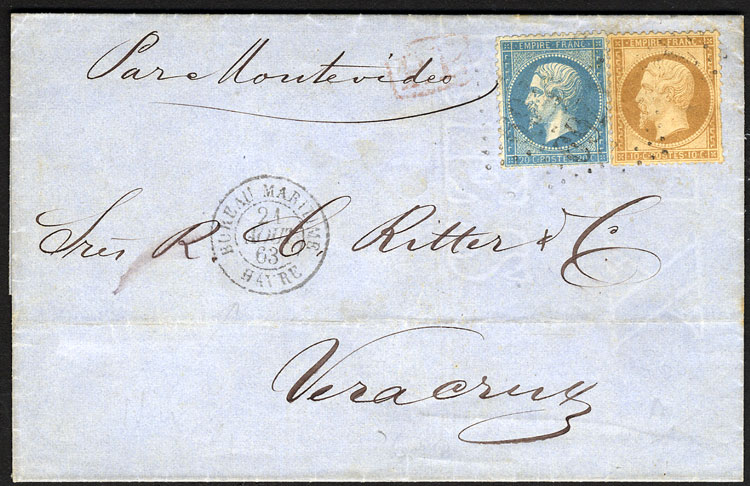 Par Montevideo
EMPIRE FRANC
20 C POSTES
EMPIRE FRANC
10 C POSTES 10 C
BUREAU MARITIME
21
AOUT
63
HAVRE
Sres R. C. Ritter & C
Veracruz